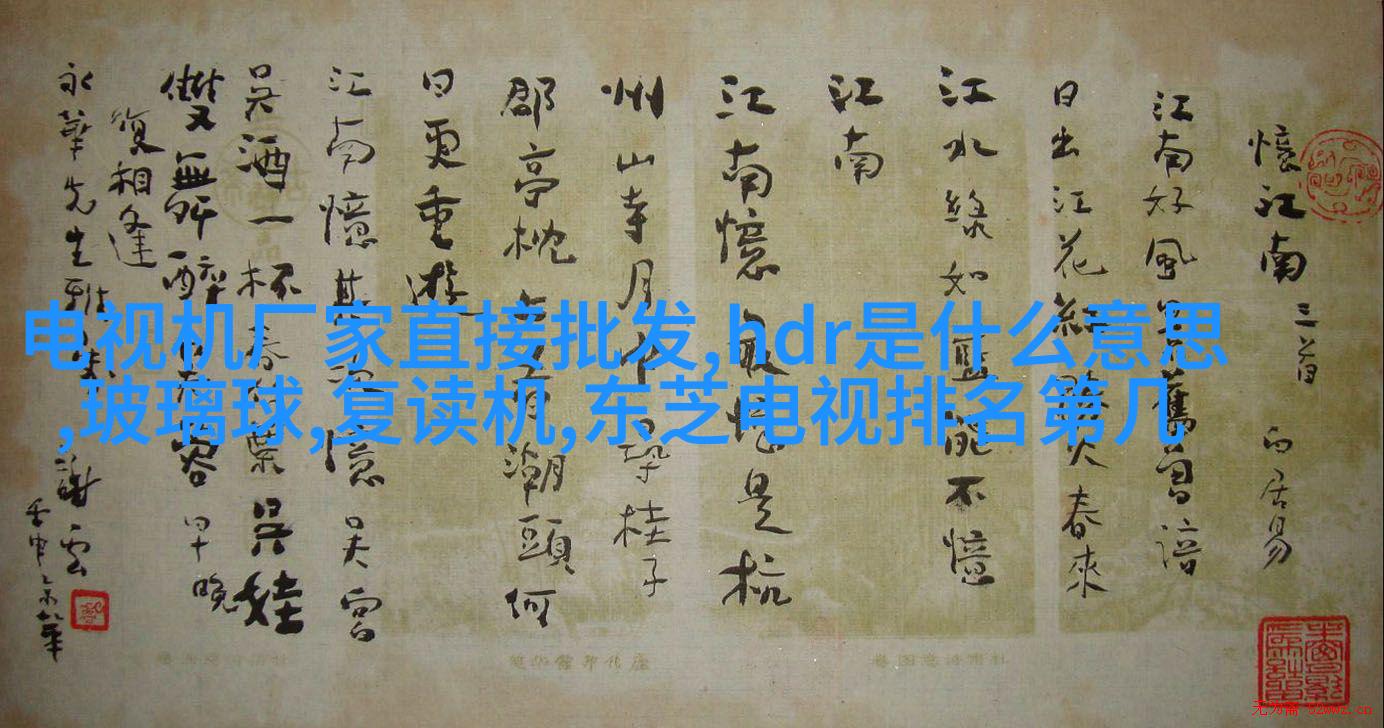 电视机厂家直接批发,hdr是什么意思
,玻璃球,复读机,东芝电视排名第几
憶江南 三首 白居易
江南好風景舊曾諳
日出江花紅勝火春來
江水綠如藍能不憶
江南
江南憶最憶是杭
州山寺月中尋桂子
郡亭枕上看潮頭何
日更重遊
江南憶其次憶吳宮
吳酒一杯春竹葉吳娃
雙舞醉芙蓉早晚
復相逢
永華先生雅 謝雲
壬申